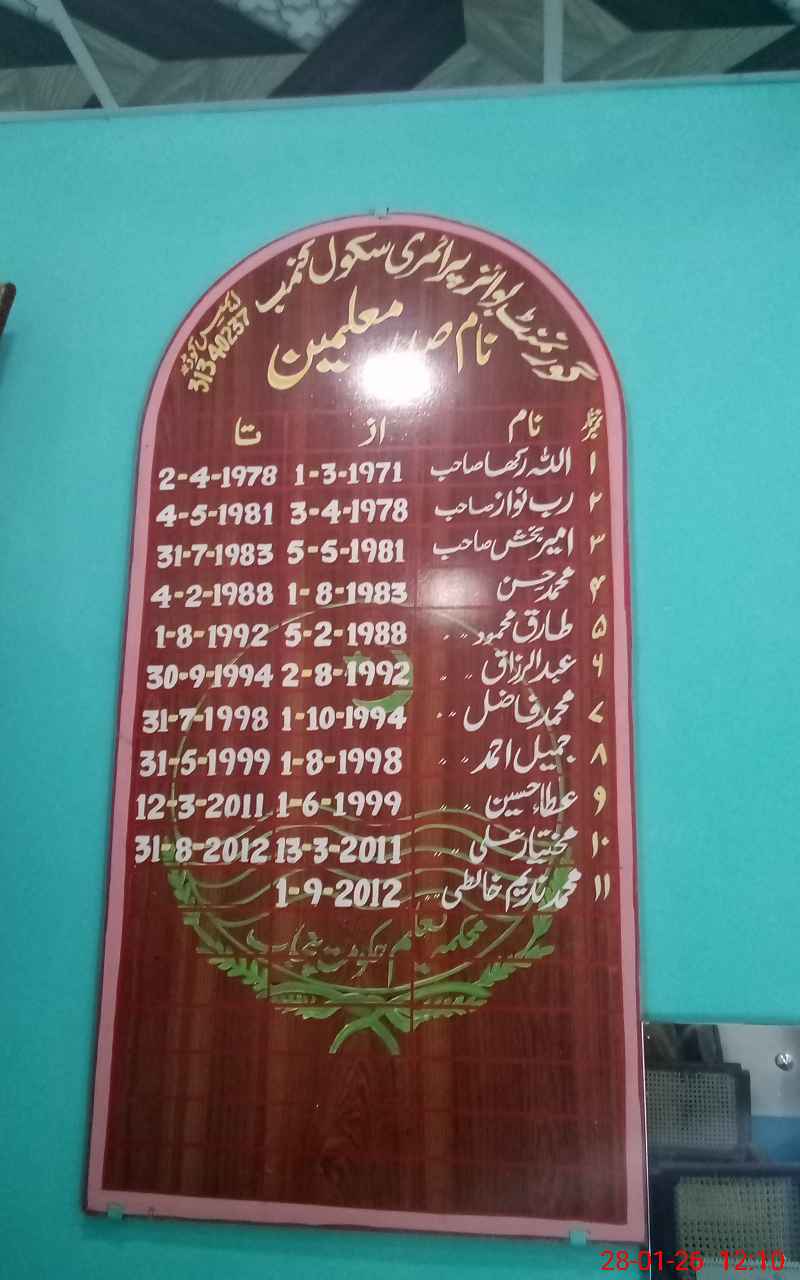 گورنمنٹ بوائز پرائمری سکول کھنمب
ایمس کوڈ
31340237
نام صدر معلمین
نمبر شمار نام از تا
۱ اللہ رکھا صاحب 1-3-1971 2-4-1978
۲ رب نواز صاحب 3-4-1978 4-5-1981
۳ امیر بخش صاحب 5-5-1981 31-7-1983
۴ محمد حسن 1-8-1983 4-2-1988
۵ طارق محمود " " 5-2-1988 1-8-1992
۶ عبدالرزاق " " 2-8-1992 30-9-1994
۷ محمد فاضل " " 1-10-1994 31-7-1998
۸ جمیل احمد " " 1-8-1998 31-5-1999
۹ عطاء حسین " " 1-6-1999 12-3-2011
۱۰ مختیار علی " " 13-3-2011 31-8-2012
۱۱ محمد ندیم خالطی " " 1-9-2012
محکمہ تعلیم حکومت پنجاب
28-01-26 12:10